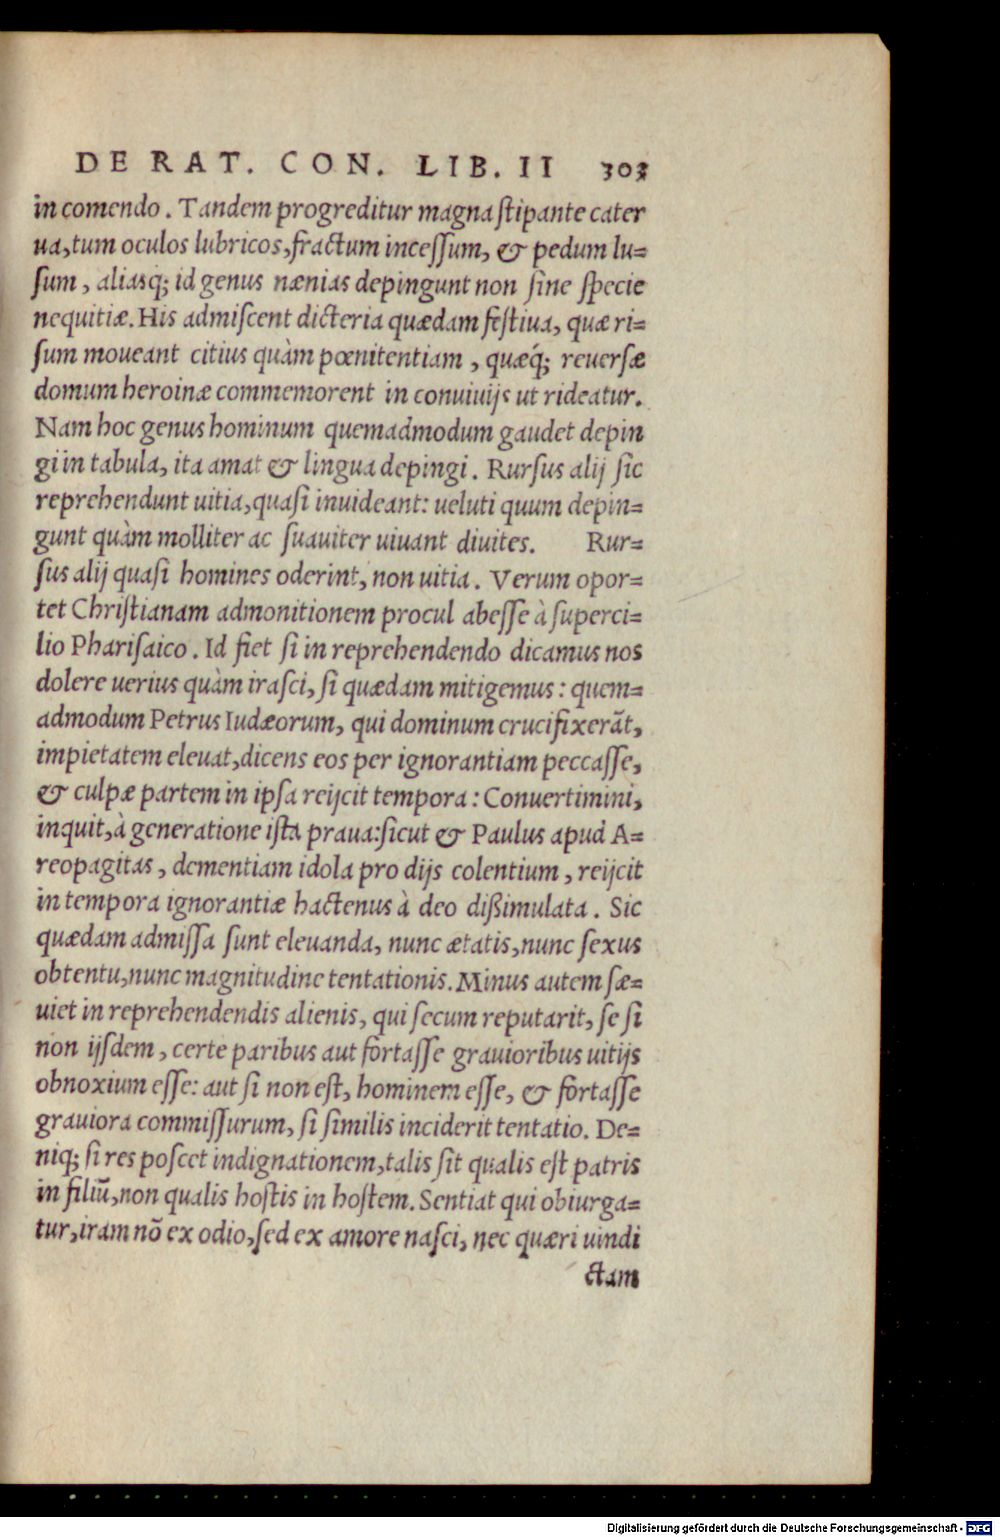 DE RAT. CON. LIB. II 303
in comendo. Tandem progreditur magna stipante cater
ua, tum oculos lubricos, fractum incessum, & pedum lu=
sum, aliasq; id genus nænias depingunt non sine specie
nequitiæ. His admiscent dicteria quædam festiua, quæ ri=
sum moueant citius quàm pœnitentiam, quæq́; reuersæ
domum heroinæ commemorent in conuiuijs ut rideatur.
Nam hoc genus hominum quemadmodum gaudet depin
gi in tabula, ita amat & lingua depingi. Rursus alij sic
reprehendunt uitia, quasi inuideant: ueluti quum depin=
gunt quàm molliter ac suauiter uiuant diuites. Rur=
sus alij quasi homines oderint, non uitia. Verum opor=
tet Christianam admonitionem procul abesse à superci=
lio Pharisaico. Id fiet si in reprehendendo dicamus nos
dolere uerius quàm irasci, si quædam mitigemus: quem=
admodum Petrus Iudæorum, qui dominum crucifixerãt,
impietatem eleuat, dicens eos per ignorantiam peccasse,
& culpæ partem in ipsa reijcit tempora: Conuertimini,
inquit, à generatione ista praua: sicut & Paulus apud A=
reopagitas, dementiam idola pro dijs colentium, reijcit
in tempora ignorantiæ hactenus à deo dißimulata. Sic
quædam admissa sunt eleuanda, nunc ætatis, nunc sexus
obtentu, nunc magnitudine tentationis. Minus autem sæ=
uiet in reprehendendis alienis, qui secum reputarit, se si
non ijsdem, certe paribus aut fortasse grauioribus uitijs
obnoxium esse: aut si non est, hominem esse, & fortasse
grauiora commissurum, si similis inciderit tentatio. De=
niq; si res poscet indignationem, talis sit qualis est patris
in filiũ, non qualis hostis in hostem. Sentiat qui obiurga=
tur, iram nõ ex odio, sed ex amore nasci, nec quæri uindi
ctam
Digitalisierung gefördert durch die Deutsche Forschungsgemeinschaft - DFG